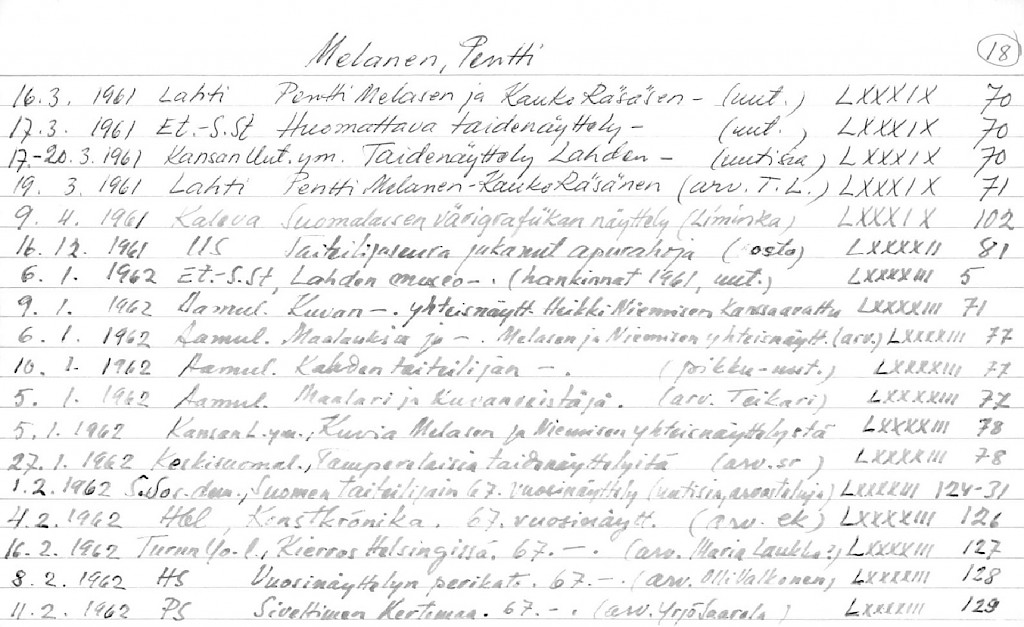 Melanen, Pentti 18
16.3. 1961 Lahti Pentti Melasen ja Kauko Räsäsen - (uut.) LXXXIX 70
17.3. 1961 Et.-S.St Huomattava taidenäyttely - (uut.) LXXXIX 70
17-20.3.1961 Kansan Uut. ym. Taidenäyttely Lahden - (uutisia) LXXXIX 70
19. 3. 1961 Lahti Pentti Melanen-Kauko Räsänen (arv. T.L.) LXXXIX 71
9. 4. 1961 Kaleva Suomalaisen värigrafiikan näyttely (Liminka) LXXXIX 102
16.12. 1961 US Taiteilijaseura jakanut apurahoja (osto) LXXXXII 81
6. 1. 1962 Et-S.St, Lahden museo - . (hankinnat 1961, uut.) LXXXXIII 5
9. 1. 1962 Aamul. Kuvan - . yhteisnäytt. Heikki Niemisen kanssa LXXXXIII 71
6. 1. 1962 Aamul. Maalauksia ja - . Melasen ja Niemisen yhteisnäytt. (arv.) LXXXXIII 77
10. 1. 1962 Aamul. Kahden taiteilijan - . (poikku-uut.) LXXXXIII 77
5. 1. 1962 Aamul. Maalari ja kuvanveistäjä. (arv. Teikari) LXXXXIII 77
5.1. 1962 Kansan L. ym., Kuvia Melasen ja Niemisen yhteisnäyttelystä LXXXXIII 78
27.1. 1962 Keskisuomal., Tamperelaisia taidenäyttelyitä (arv. sr) LXXXXIII 78
1.2. 1962 S.Sos.dem., Suomen taiteilijain 67. vuosinäyttely (uutisia, arvosteluja) LXXXXIII 124-31
4.2. 1962 Hbl, Konstkrönika. 67. vuosinäytt. (arv. ek) LXXXXIII 126
16. 2. 1962 Turun Yo.l., Kierros Helsingissä. 67. - . (arv. Maria Laukka?) LXXXXIII 127
8. 2. 1962 HS Vuosinäyttelyn perikat. 67. - . (arv. Olli Valkonen) LXXXXIII 128
11. 2. 1962 PS Siveltimen Kertomaa. 67. - . (arv. Yrjö Saarela) LXXXXIII 129